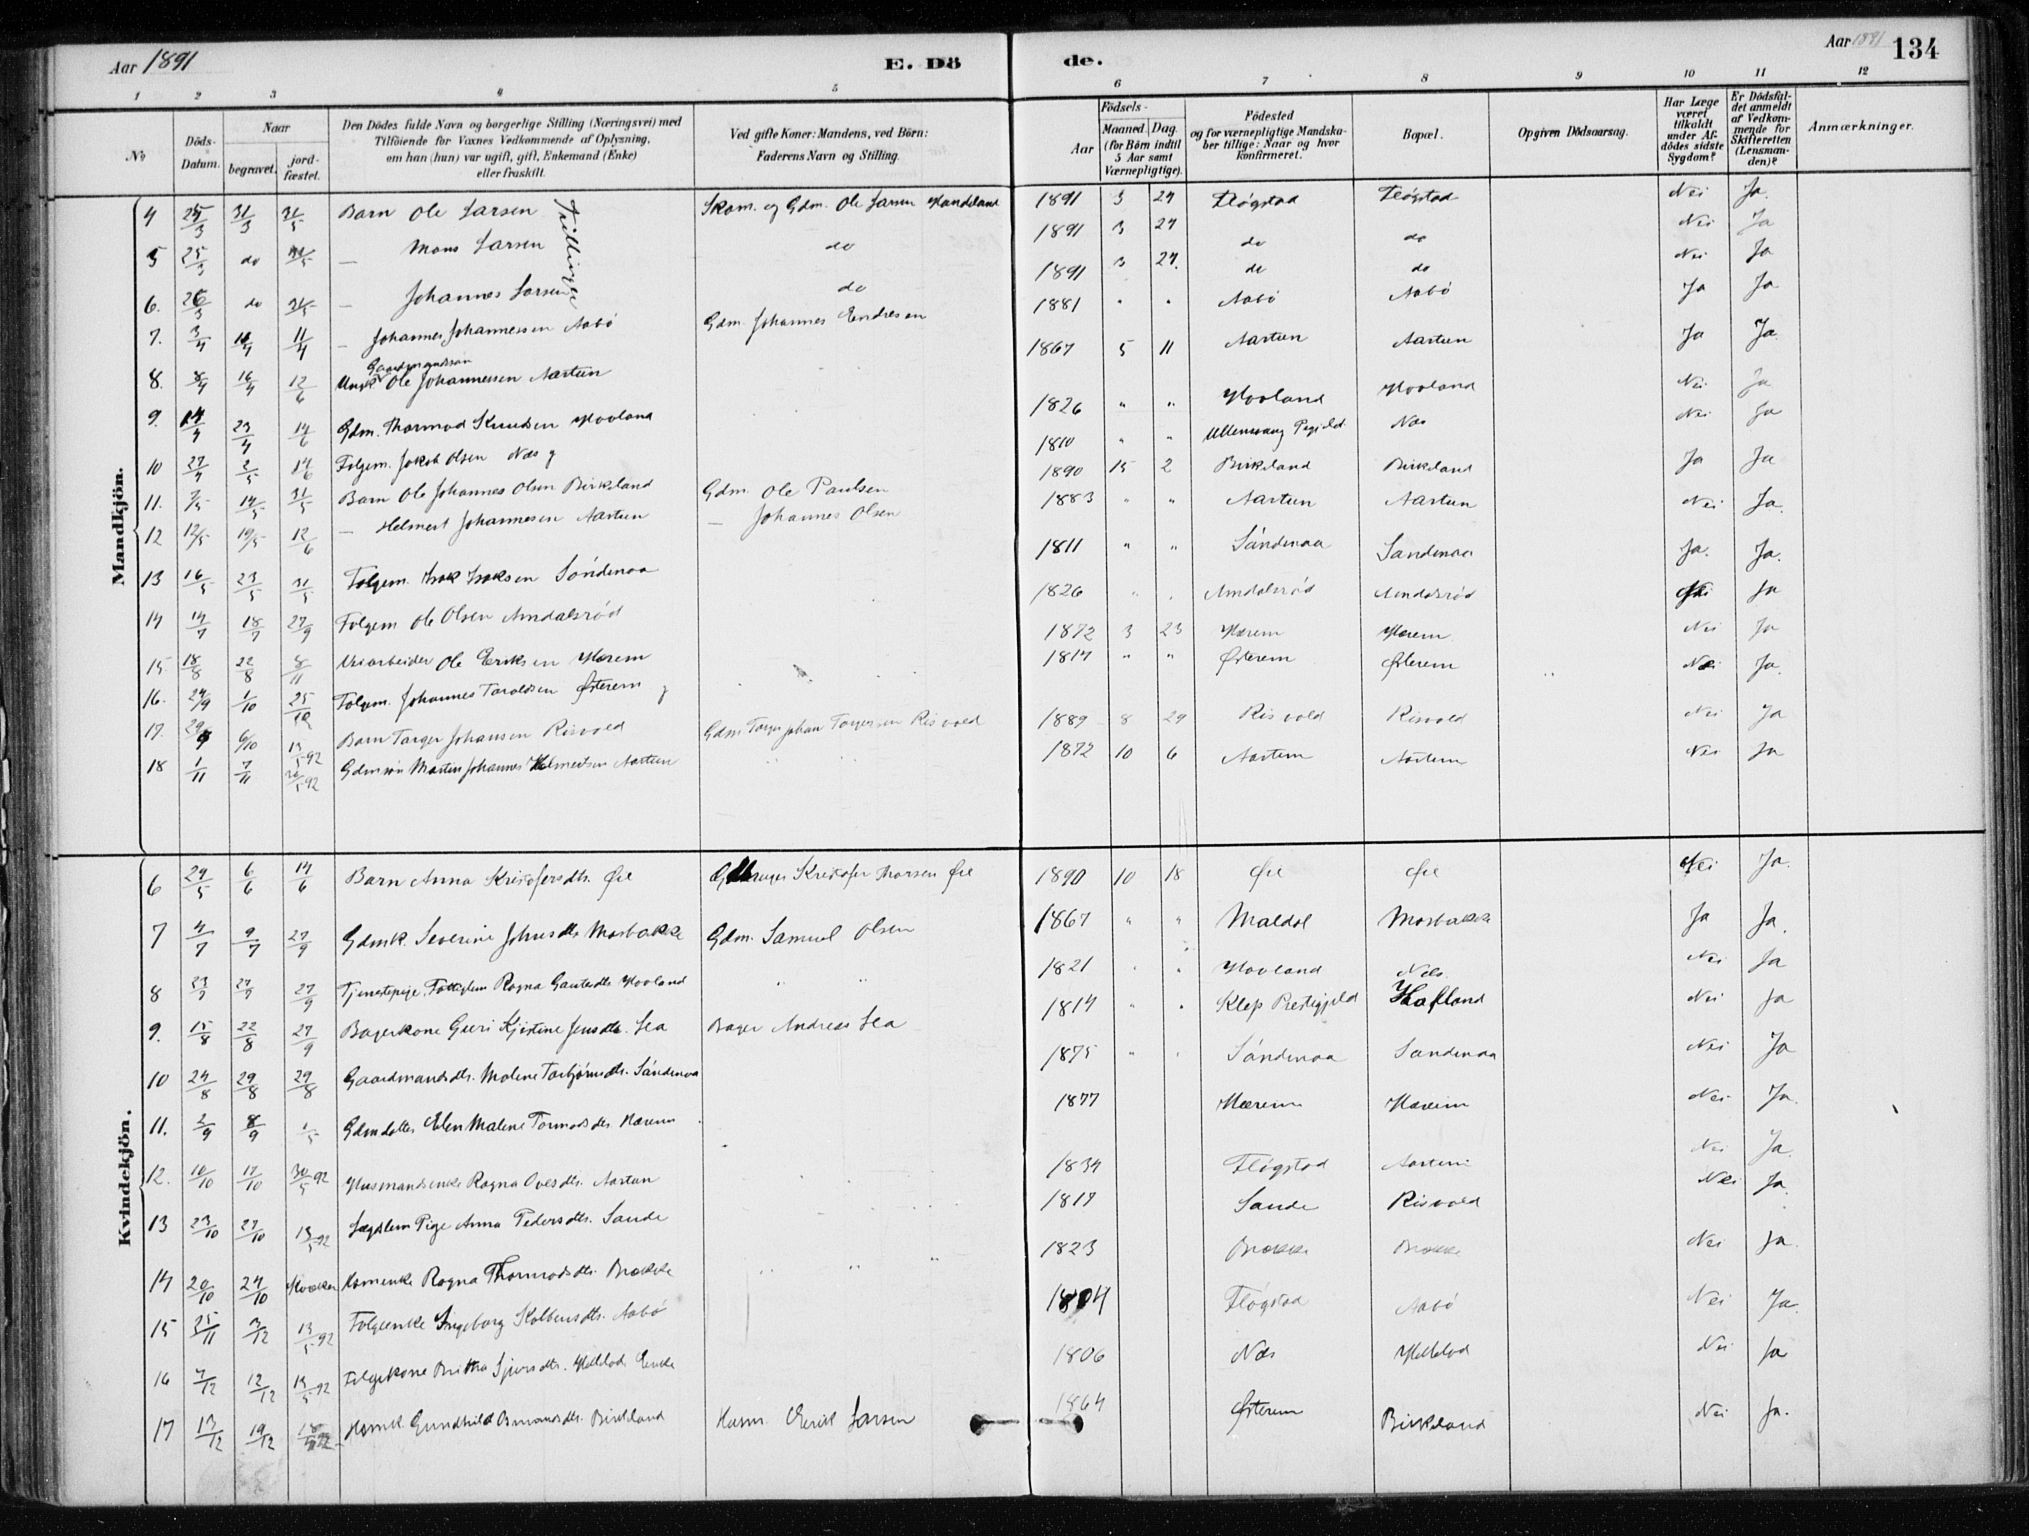 Aar 1891 E. Dö de. Aar 1891 134
1 2 3 4 5 6 7 8 9 10 11 12
No Döds-Datum. Naar begravet. jordfæstet. Den Dödes fulde Navn og borgerlige Stilling (Næringsvei) med Tilföiende for Voxnes Vedkommende af Oplysning, om han (hun) var ugift, gift, Enkemand (Enke) eller fraskilt. Ved gifte Koner: Mandens, ved Börn: Faderens Navn og Stilling. Födsels- Aar Maaned. Dag. (for Börn indtil 5 Aar samt Værnepligtige). Födested og for værnepligtige Mandskaber tillige: Naar og hvor konfirmeret. Bopæl. Opgiven Dödsaarsag. Har Læge været tilkaldt under Afdödes sidste Sygdom? Er Dödsfaldet anmeldt af Vedkommende for Skifteretten (Lensmanden)? Anmærkninger.
Mandkjön.
4 25/3 31/3 31/5 Barn Ole Larsen Trillinger Skom. og Gdm. Ole Larsen 1891 3 24 Fløgstad Fløgstad Nei Ja.
5 25/3 do 31/5 — Mons Larsen do 1891 3 24 do do Nei Ja
6. 26/3 do 31/5 — Johannes Larsen do 1891 3 24. do do Nei Ja
7. 3/4 11/4 11/4 — Johannes Johannessen Aabø Gdm. Johannes Endresen 1881 " " Aabø Aabø Ja Ja
8. 8/4 16/4 12/6 Ungk. Gaardmandssøn Ole Johannessen Aartun 1867 5 11 Aartun Aartun Ja Ja.
9. 14/4 23/4 14/6 Gdm. Thormod Knudsen Hovland 1826 " " Hovland Hovland Nei Ja
10 27/4 2/5 14/6 Folgem. Jakob Olsen Næs g 1810 " " Ullensvang Pgjeld Næs Nei Ja
11. 7/5 14/5 31/5 Barn Ole Johannes Olsen Birkeland Gdm. Ole Paulsen 1890 15 2 Birkeland Birkeland Ja Ja
12 12/5 19/5 12/6 — Helmert Johannesen Aartun — Johannes Olsen 1883 " " Aartun Aartun Nei Ja.
13 16/5 23/5 31/5 Folgem. Isak Isaksen Sándenaa 1811 " " Sándenaa Sandenaa Ja. Ja.
14 14/7 18/7 27/9 Folgem Ole Olsen Amdalsrød 1826 " " Amdalsrød Amdalsrød Nei Ja
15 18/8 22/8 8/11 Veiarbeider Ole Eriksen Hærem 1872 3 23 Hærem Hærem Nei Ja
16. 24/9 1/10 25/10 Folgem. Johannes Taraldsen Østerem g 1814 " " Østerem Østerem Nei Ja.
17. 29/9 6/10 13/5 92 Barn Targer Johansen Risvold Gdm. Targer Johan Torgersen Risvold 1889 8 29 Risvold Risvold Nei Ja
18 1/11 7/11 26/5 92 Gdmsøn Martin Johannes Helmertsen Aartun 1872 10 6 Aartun Aartun Nei Ja
Kvindekjön.
6 29/5 6/6 14/6 Barn Anna Kristofersdtr. Øie Kristofer Thorsen Øie 1890 10 18 Øie Øie Nei Ja.
7 4/7 9/7 27/9 Gdmk. Severine Johnsdtr Mosbakke Gdm. Samuel Olsen 1867 " " Maldal Mosbakke Ja Ja.
8 23/7 27/7 27/9 Tjenestepige, Fattiglem Ragna Gautesdtr Hovland " " 1821 " " Hovland Næs Nei Ja
9. 15/8 22/8 27/9 Bagerkone Guri Kjistine Jensdtr. Lea Bager Andreas Lea 1814 " " Klep Prestegjeld Hafland Nei Ja
10 24/8 29/8 29/8 Gaardmandsdtr. Malene Torbjørnsdtr. Sándenaa 1875 " " Sándenaa Sandenaa Nei Ja
11. 2/9 8/9 1/5 Gdmdatter Elen Malene Tormodsdtr Hærem 1877 Hærem Hærem Nei Ja.
12. 10/10 17/10 30/5 92 Husmandsenke Ragna Ovesdtr. Aartun 1834 Fløgstad Aartun Nei Ja.
13 23/10 27/10 13/5 92 Lægdslem Pige Anna Pedersdtr. Sande 1817 Sande Risvold Nei Ja.
14 20/10 24/10 Kvæker Hsmenke Ragna Thormodsdtr. Brække " " " 1823 Brække Brække Nei Ja.
15 25/11 3/12 13/5 92 Folgeenke Ingeborg Kolbensdtr. Aabø 1804 Fløgstad Aabø Nei Ja.
16 7/12 12/12 13/5 92 Folgekone Britha Sjursdtr. Enke 1806 Næs Nei Ja
17 13/12 19/12 Hsmk. Gundhild Osmundsdtr. Birkeland Husm. Eerik Larsen 1864 Østerem Birkeland Nei Ja.